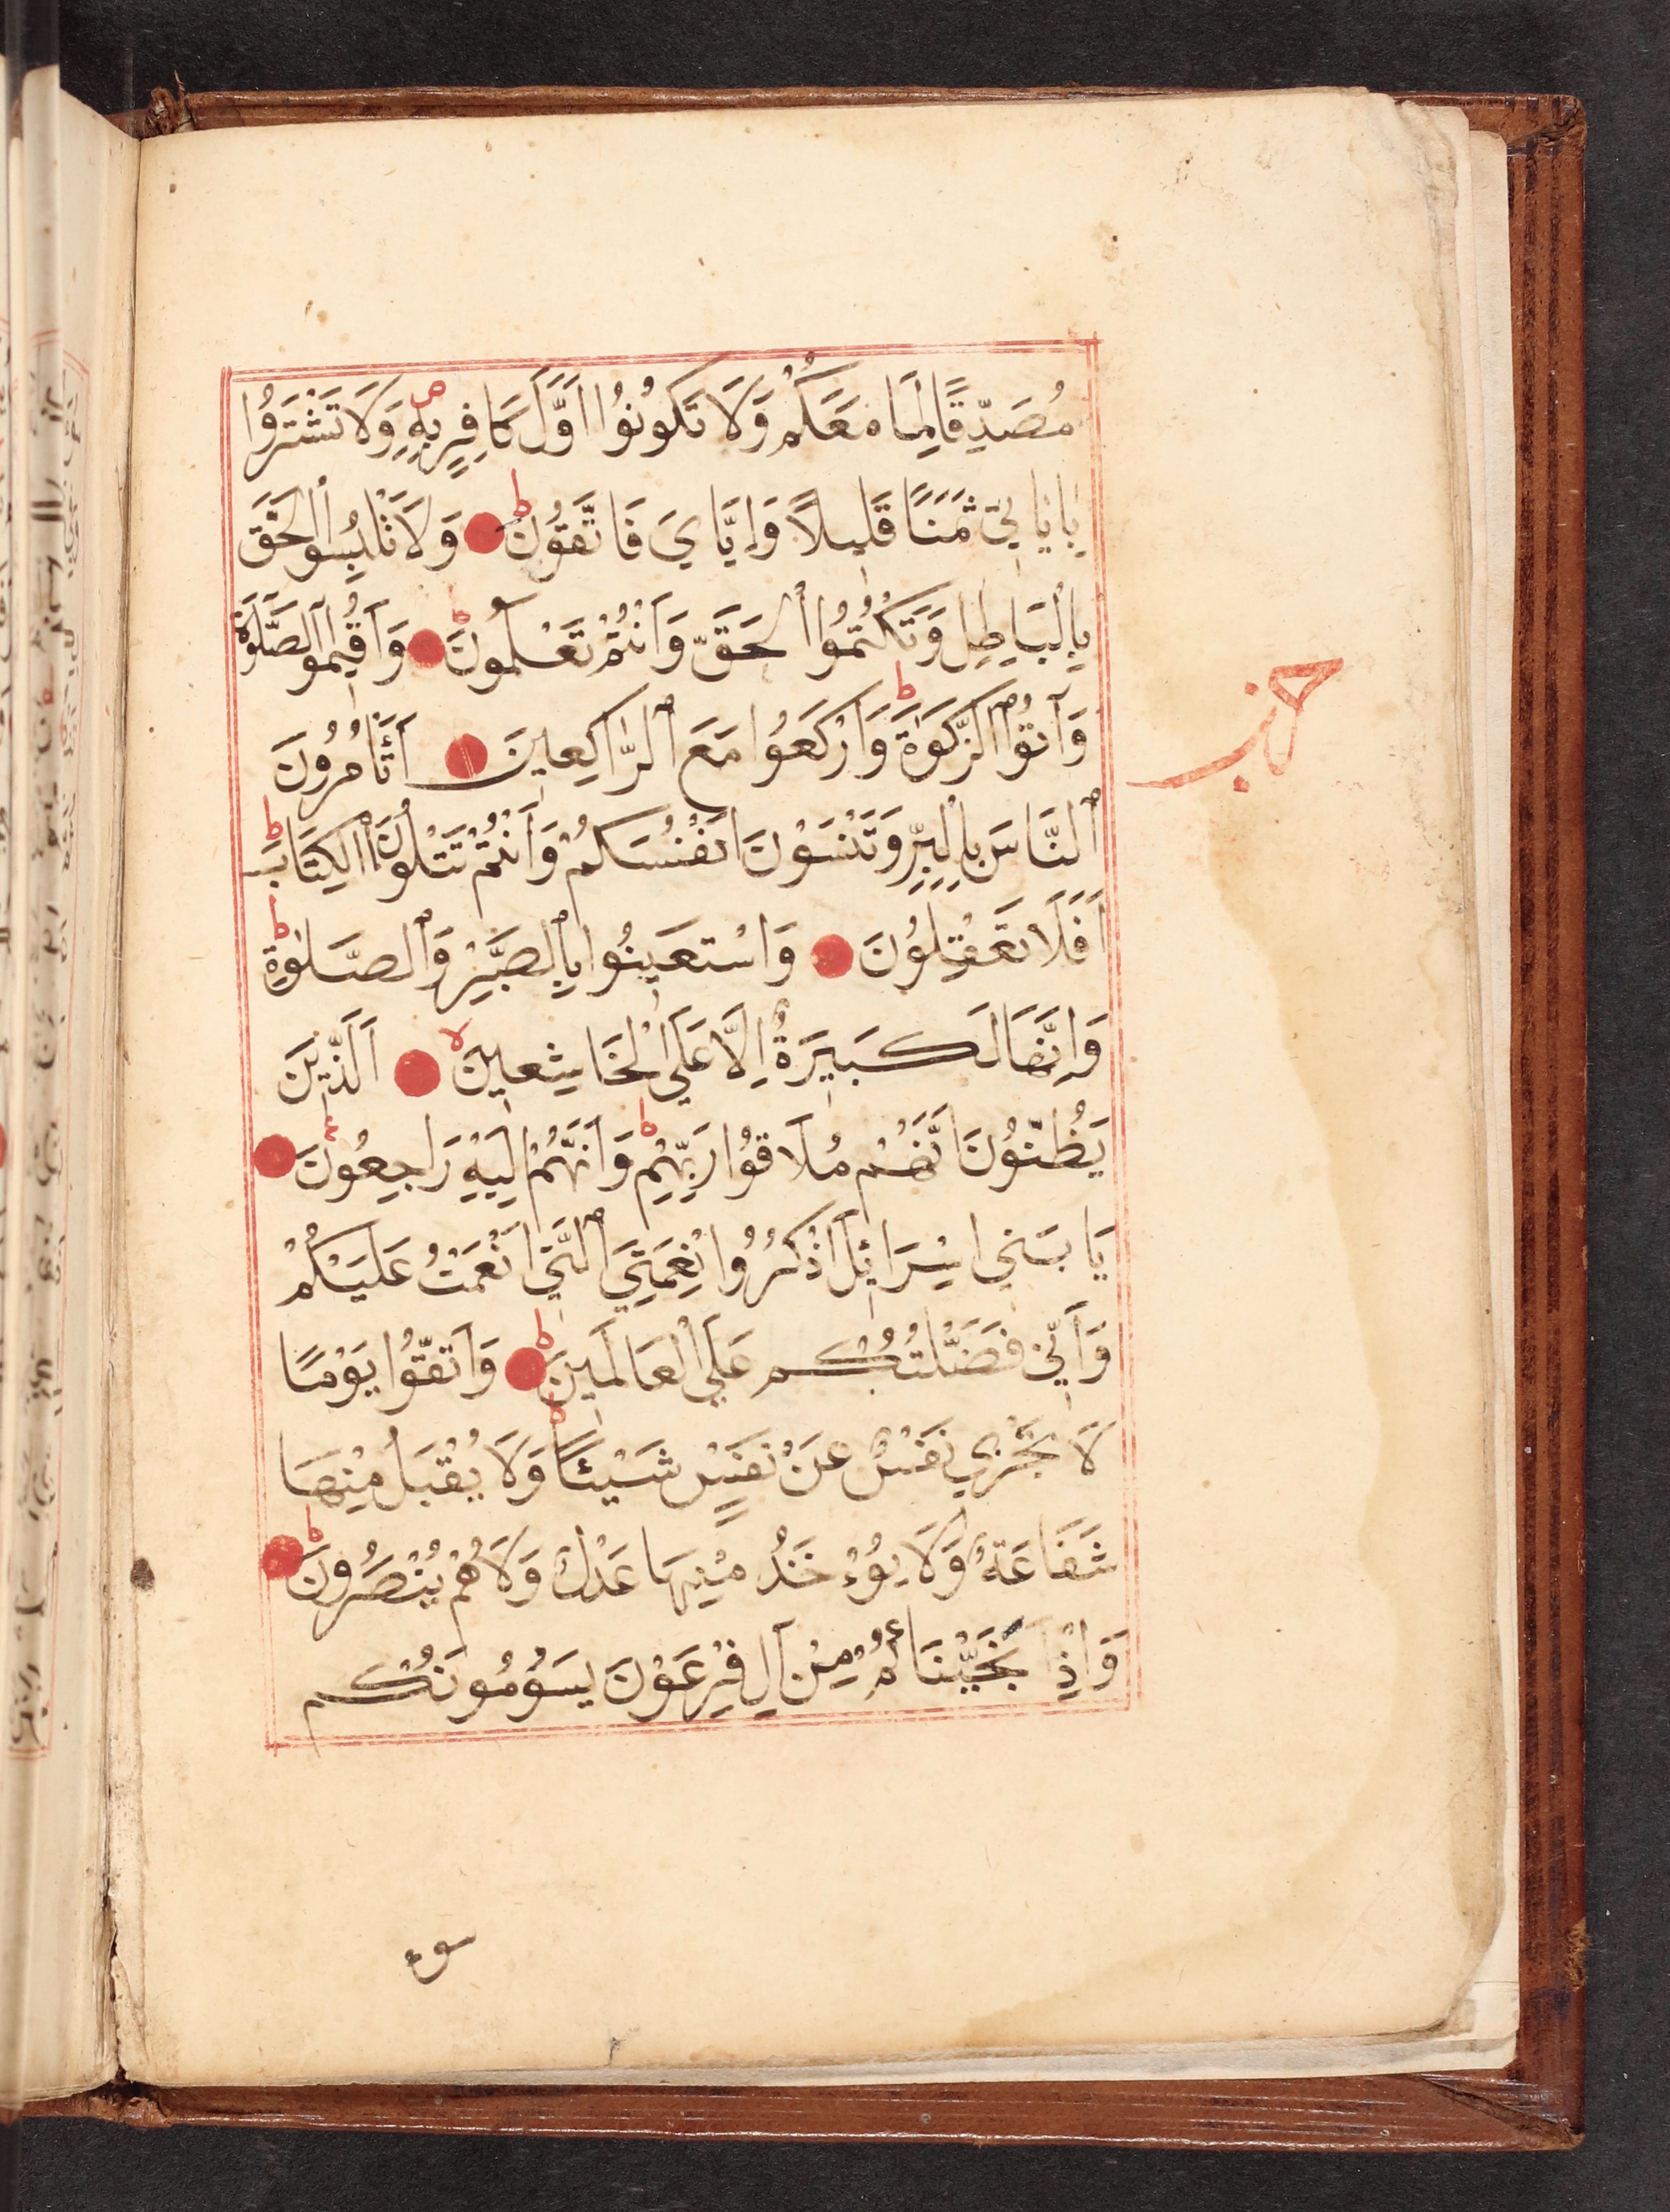 مُصَدِّقًا لِمَا مَعَكُمْ وَلَا تَكُونُوا اَوَّلَ كَافِرٍ بِهِ ص وَلَا تَشْتَرُوا
بِاٰيَاتِي ثَمَنًا قَلِيلًا وَاِيَّايَ فَاتَّقُونِ ط وَلَا تَلْبِسُوا الْحَقَّ
بِالْبَاطِلِ وَتَكْتُمُوا الْحَقَّ وَاَنْتُمْ تَعْلَمُونَ ط وَاَقِيمُوا الصَّلٰوةَ
وَاٰتُوا الزَّكٰوةَ ط وَارْكَعُوا مَعَ الرَّاكِعِينَ اَتَأْمُرُونَ
حزب
النَّاسَ بِالْبِرِّ وَتَنْسَوْنَ اَنْفُسَكُمْ وَاَنْتُمْ تَتْلُونَ الْكِتَابَ ط
اَفَلَا تَعْقِلُونَ وَاسْتَعِينُوا بِالصَّبْرِ وَالصَّلٰوةِ ط
وَاِنَّهَا لَكَبِيرَةٌ اِلَّا عَلَى الْخَاشِعِينَ لا اَلَّذِينَ
يَظُنُّونَ اَنَّهُمْ مُلَاقُوا رَبِّهِمْ ط وَاَنَّهُمْ اِلَيْهِ رَاجِعُونَ ع
يَا بَنِي اِسْرَائِلَ اذْكُرُوا نِعْمَتِيَ الَّتِي اَنْعَمْتُ عَلَيْكُمْ
وَاَنِّي فَضَّلْتُكُمْ عَلَى الْعَالَمِينَ ط وَاتَّقُوا يَوْمًا
لَا تَجْزِي نَفْسٌ عَنْ نَفْسٍ شَيْئًا ط وَلَا يُقْبَلُ مِنْهَا
شَفَاعَةٌ وَلَا يُؤْخَذُ مِنْهَا عَدْلٌ وَلَا هُمْ يُنْصَرُونَ ط
وَاِذْ نَجَّيْنَاكُمْ مِنْ اٰلِ فِرْعَوْنَ يَسُومُونَكُمْ
سوء